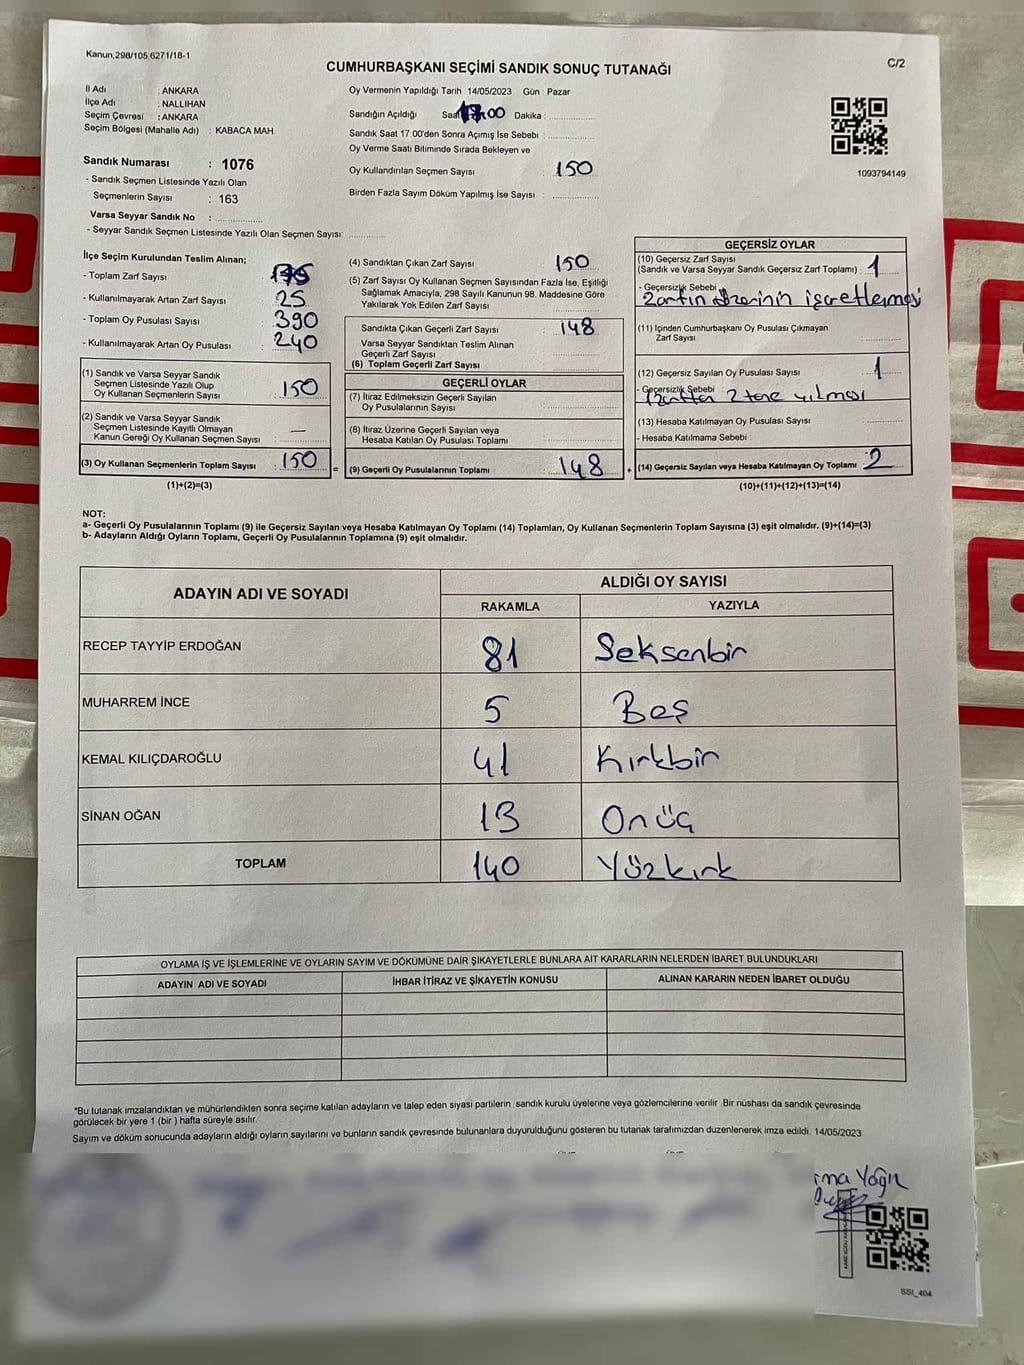 Kanun,298/105,6271/18-1
C/2
CUMHURBAŞKANI SEÇİMİ SANDIK SONUÇ TUTANAĞI
İl Adı : ANKARA
İlçe Adı : NALLIHAN
Seçim Çevresi : ANKARA
Seçim Bölgesi (Mahalle Adı) : KABACA MAH.
Sandık Numarası : 1076
- Sandık Seçmen Listesinde Yazılı Olan
Seçmenlerin Sayısı : 163
Varsa Seyyar Sandık No : ................
- Seyyar Sandık Seçmen Listesinde Yazılı Olan Seçmen Sayısı: ............
Oy Vermenin Yapıldığı Tarih 14/05/2023 Gün : Pazar
Sandığın Açıldığı Saat 17:00 Dakika : ............
Sandık Saat 17 00'den Sonra Açımış İse Sebebi : ............
Oy Verme Saati Bitiminde Sırada Bekleyen ve
Oy Kullandırılan Seçmen Sayısı : 150
Birden Fazla Sayım Döküm Yapılmış İse Sayısı : ............
1093794149
İlçe Seçim Kurulundan Teslim Alınan;
- Toplam Zarf Sayısı : 175
- Kullanılmayarak Artan Zarf Sayısı : 25
- Toplam Oy Pusulası Sayısı : 390
- Kullanılmayarak Artan Oy Pusulası : 240
(1) Sandık ve Varsa Seyyar Sandık
Seçmen Listesinde Yazılı Olup
Oy Kullanan Seçmenlerin Sayısı : 150
(2) Sandık ve Varsa Seyyar Sandık
Seçmen Listesinde Kayıtlı Olmayan
Kanun Gereği Oy Kullanan Seçmen Sayısı : —
(3) Oy Kullanan Seçmenlerin Toplam Sayısı : 150
(1)+(2)=(3)
(4) Sandıktan Çıkan Zarf Sayısı : 150
(5) Zarf Sayısı Oy Kullanan Seçmen Sayısından Fazla İse, Eşitliği
Sağlamak Amacıyla, 298 Sayılı Kanunun 98. Maddesine Göre
Yakılarak Yok Edilen Zarf Sayısı
Sandıkta Çıkan Geçerli Zarf Sayısı : 148
Varsa Seyyar Sandıktan Teslim Alınan
Geçerli Zarf Sayısı
(6) Toplam Geçerli Zarf Sayısı
GEÇERLİ OYLAR
(7) İtiraz Edilmeksizin Geçerli Sayılan
Oy Pusulalarının Sayısı
(8) İtiraz Üzerine Geçerli Sayılan veya
Hesaba Katılan Oy Pusulası Toplamı
= (9) Geçerli Oy Pusulalarının Toplamı : 148 +
GEÇERSİZ OYLAR
(10) Geçersiz Zarf Sayısı
(Sandık ve Varsa Seyyar Sandık Geçersiz Zarf Toplamı) : 1
- Geçersizlik Sebebi
Zarfın üzerinin işaretlenmesi
(11) İçinden Cumhurbaşkanı Oy Pusulası Çıkmayan
Zarf Sayısı
(12) Geçersiz Sayılan Oy Pusulası Sayısı : 1
- Geçersizlik Sebebi
2 tane
(13) Hesaba Katılmayan Oy Pusulası Sayısı
- Hesaba Katılmama Sebebi :
(14) Geçersiz Sayılan veya Hesaba Katılmayan Oy Toplamı : 2
(10)+(11)+(12)+(13)=(14)
NOT:
a- Geçerli Oy Pusulalarının Toplamı (9) ile Geçersiz Sayılan veya Hesaba Katılmayan Oy Toplamı (14) Toplamları, Oy Kullanan Seçmenlerin Toplam Sayısına (3) eşit olmalıdır. (9)+(14)=(3)
b- Adayların Aldığı Oyların Toplamı, Geçerli Oy Pusulalarının Toplamına (9) eşit olmalıdır.
ADAYIN ADI VE SOYADI ALDIĞI OY SAYISI
RAKAMLA YAZIYLA
RECEP TAYYİP ERDOĞAN 81 Seksenbir
MUHARREM İNCE 5 Beş
KEMAL KILIÇDAROĞLU 41 Kırkbir
SİNAN OĞAN 13 Onüç
TOPLAM 140 Yüzkırk
OYLAMA İŞ VE İŞLEMLERİNE VE OYLARIN SAYIM VE DÖKÜMÜNE DAİR ŞİKAYETLERLE BUNLARA AİT KARARLARIN NELERDEN İBARET BULUNDUKLARI
ADAYIN ADI VE SOYADI İHBAR İTİRAZ VE ŞİKAYETİN KONUSU ALINAN KARARIN NEDEN İBARET OLDUĞU
*Bu tutanak imzalandıktan ve mühürlendikten sonra seçime katılan adayların ve talep eden siyasi partilerin sandık kurulu üyelerine veya gözlemcilerine verilir .Bir nüshası da sandık çevresinde
görülecek bir yere 1 (bir ) hafta süreyle asılır.
Sayım ve döküm sonucunda adayların aldığı oyların sayılarını ve bunların sandık çevresinde bulunanlara duyurulduğunu gösteren bu tutanak tarafımızdan düzenlenerek imza edildi. 14/05/2023
SSI_404